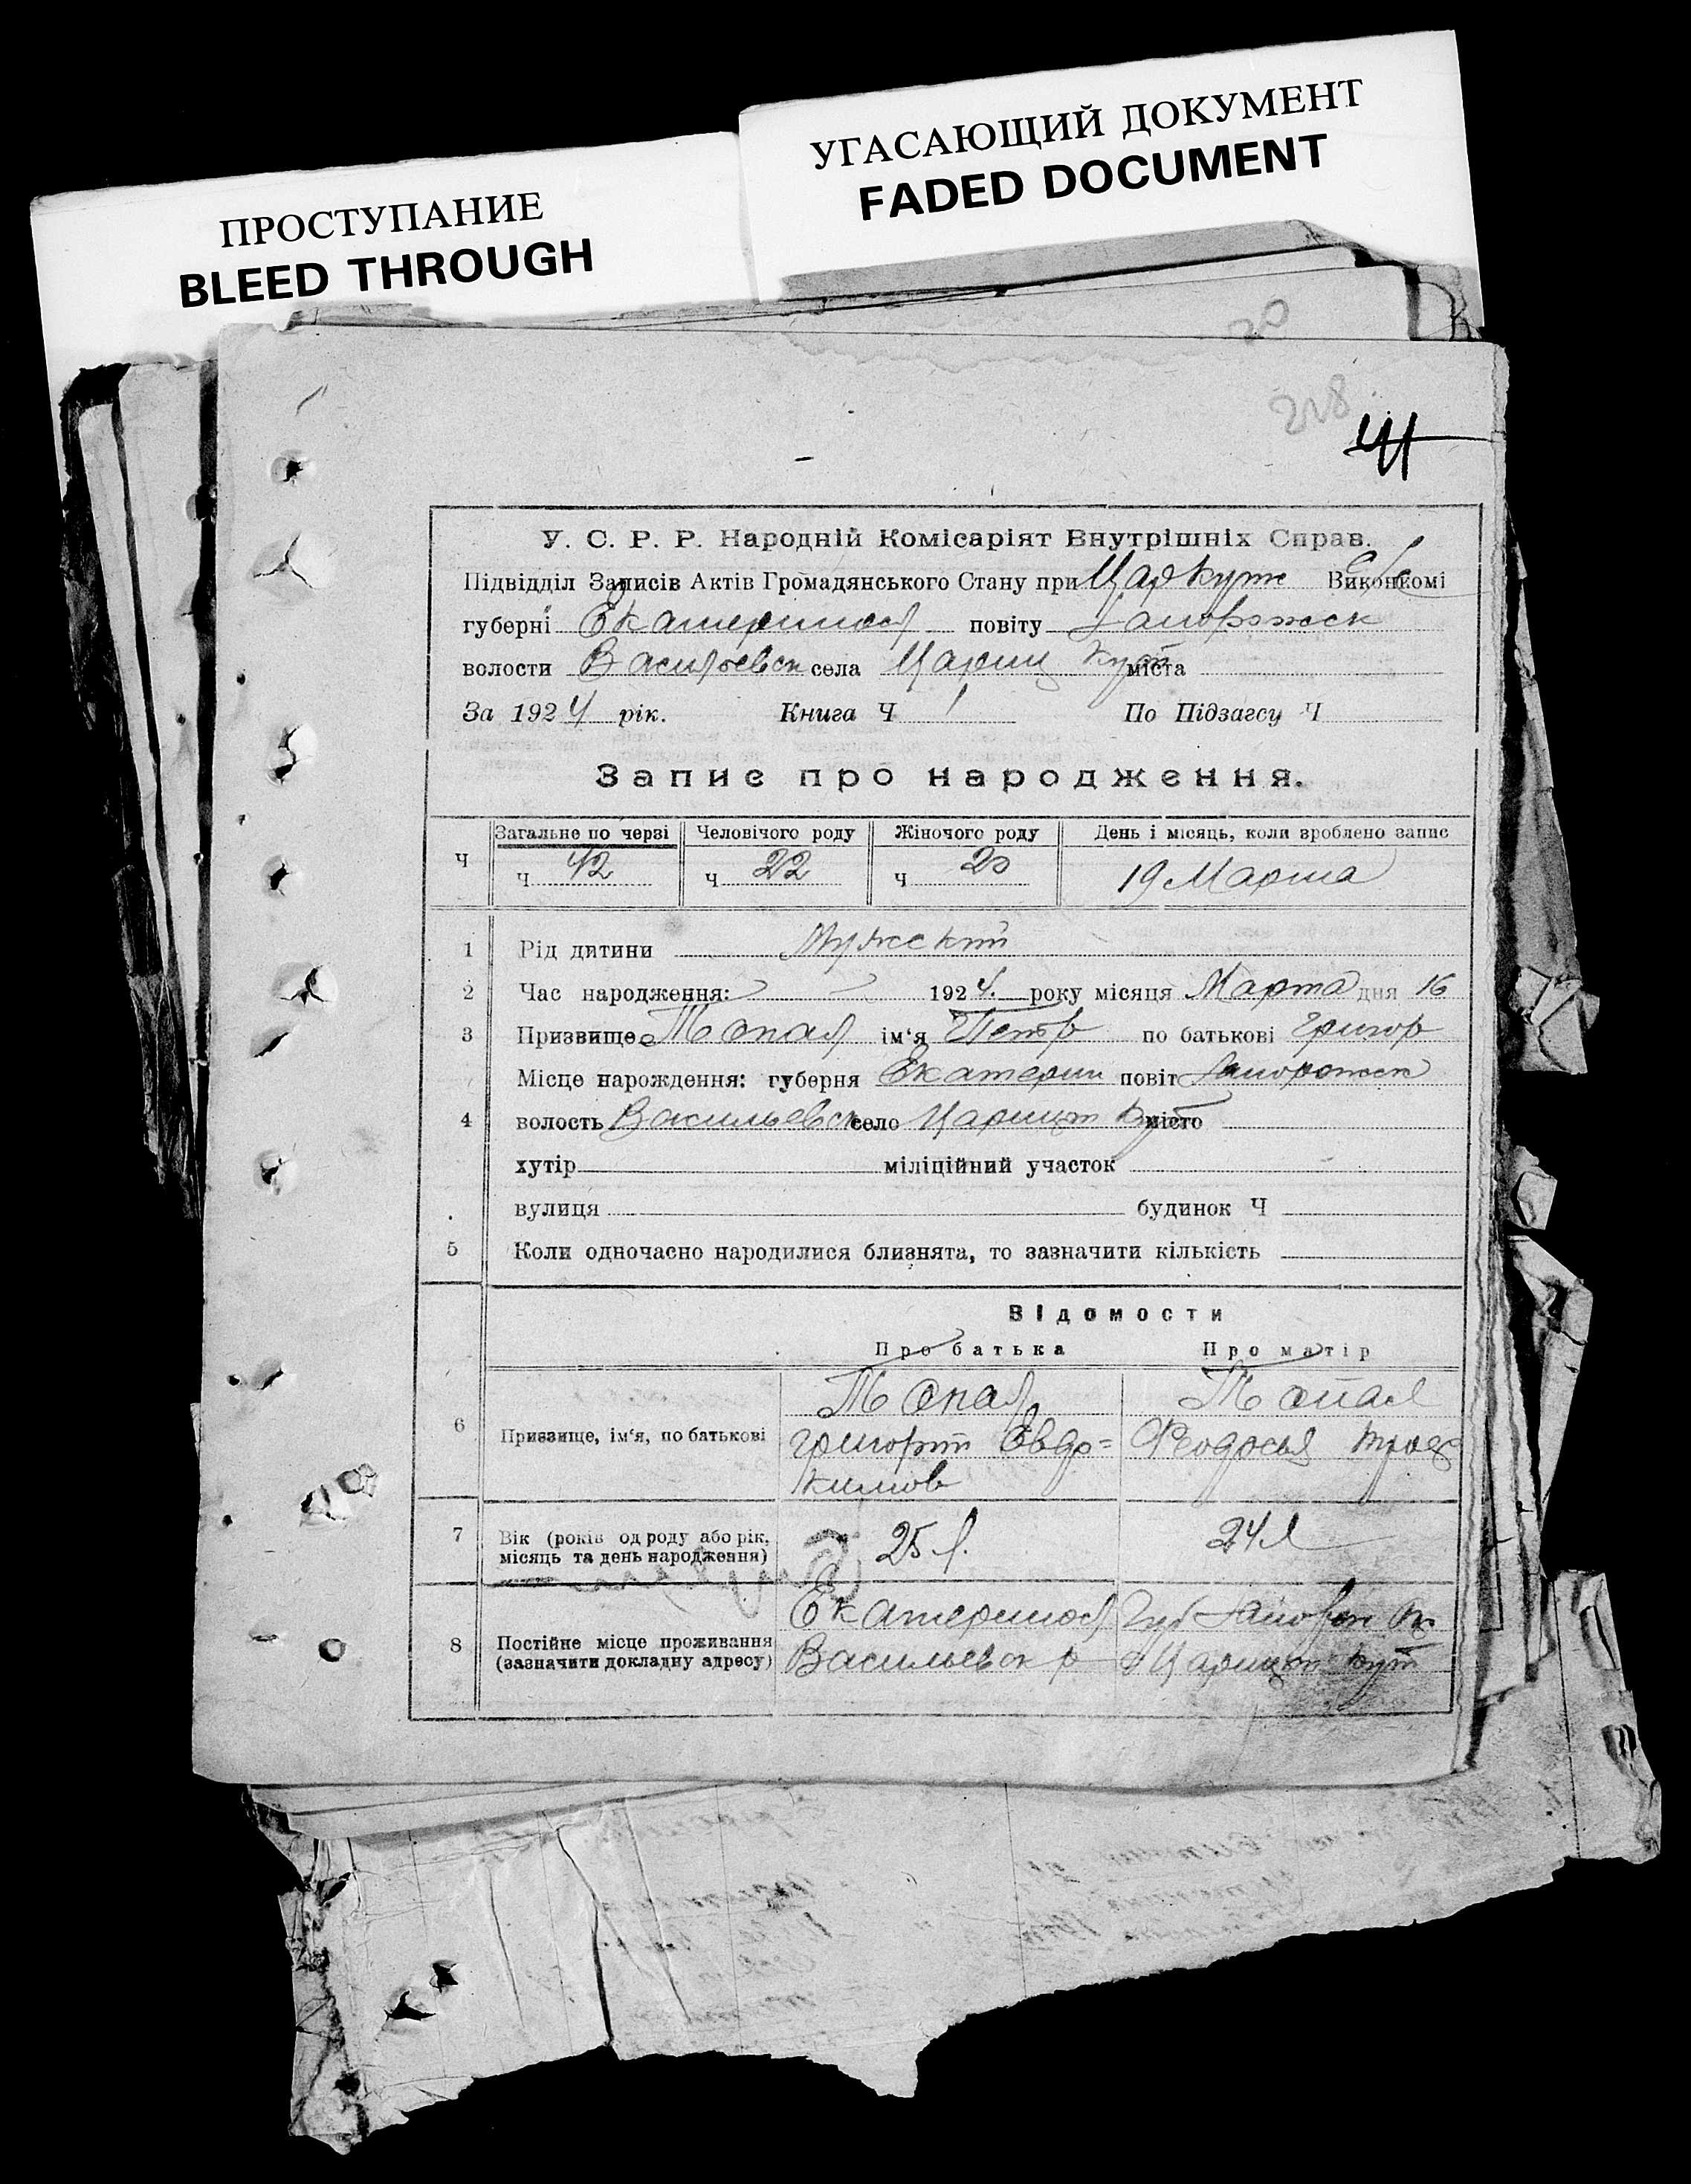 ПРОСТУПАНИЕ
BLEED THROUGH
УГАСАЮЩИЙ ДОКУМЕНТ
FADED DOCUMENT
20
218
41
У. С. Р. Р. Народній Комісаріят Внутрішніх Справ.
Підвідділ Записів Актів Громадянського Стану при ЦарКуте Виконкомі
губерні Екатеринослав повіту Запорожск
волости Васильевск села Цариц Кут міста
За 1924 рік. Книга Ч 1 По Підзагсу Ч
Запис про народження.
Загальне по черзі Человічого роду Жіночого роду День і місяць, коли зроблено запис
Ч Ч 42 Ч 22 Ч 20 19 Марта
1 Рід дитини Мужской
2 Час народження: 1924. року місяця Марта дня 16
3 Призвище Топал ім‘я Петр по батькові Григор
Місце нарождення: губерня Екатерин повіт Запорожск
4 волость Васильевск село Царицын Кут місто
хутір міліційний участок
вулиця будинок Ч
5 Коли одночасно народилися близнята, то зазначити кількість
Відомости
Про батька Про матір
6 Призвище, ім‘я, по батькові
Топал Топал
Григорий Евдо=
кимов
Феодосья
7 Вік (років од роду або рік, місяць та день народження) 25 л. 24 л
8 Постійне місце проживання (зазначити докладну адресу)
Екатериносл Губ Запорож
Васильевск р Царицын Кут